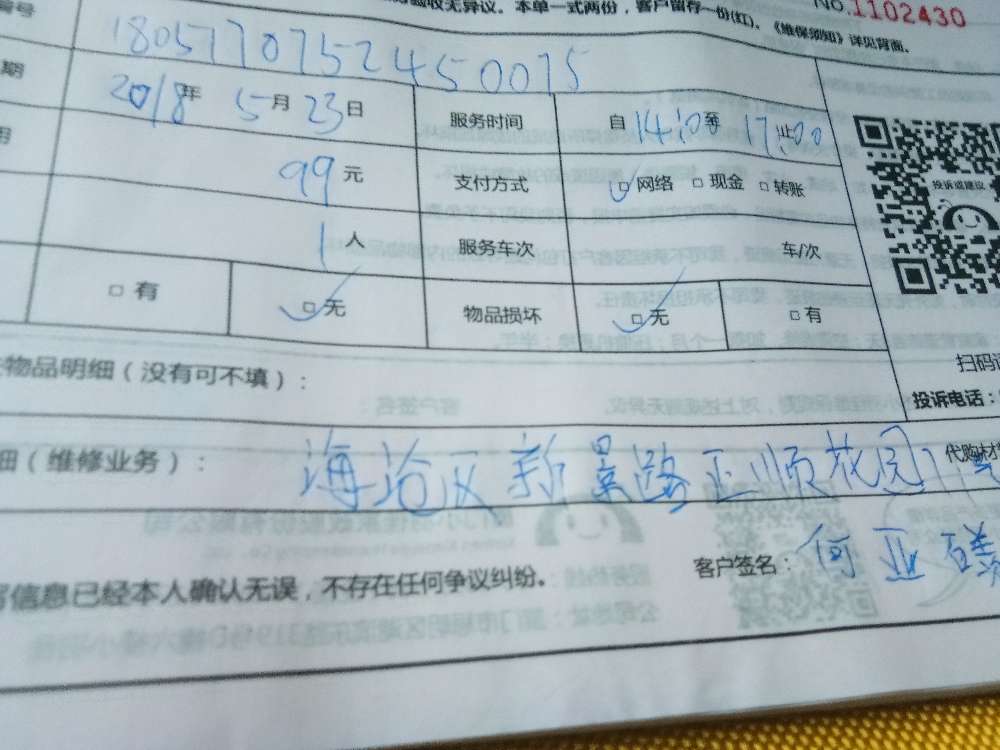 验收无异议。本单一式两份，客户留存一份(红)。《维保须知》详见背面。
NO.1102430
编号 1805170752450075
期 2018年 5月 23日 服务时间 自 14:00 至 17:00 止
用 99 元 支付方式 ☑网络 □现金 □转账
1 人 服务车次 车/次
□有 ☑无 物品损坏 ☑无 □有
投诉或建议
扫码
投诉电话：
物品明细（没有可不填）：
细（维修业务）： 海沧区新景路正顺花园
代购材
信息已经本人确认无误，不存在任何争议纠纷。
客户签名： 何亚